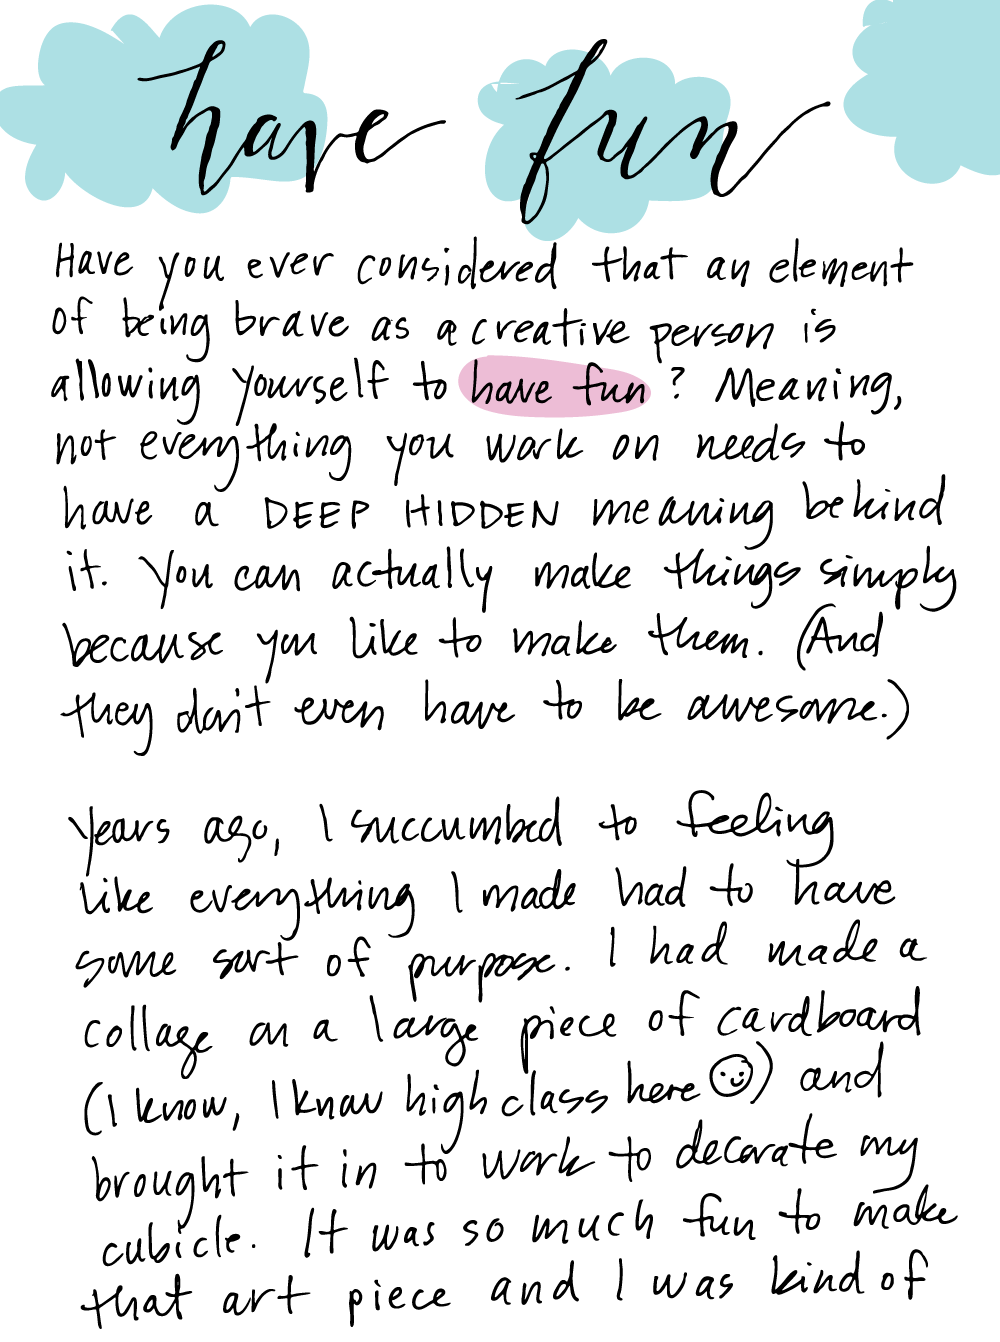 have fun
Have you ever considered that an element
of being brave as a creative person is
allowing yourself to have fun? Meaning,
not everything you work on needs to
have a DEEP HIDDEN meaning behind
it. You can actually make things simply
because you like to make them. (And
they don't even have to be awesome.)
Years ago, I succumbed to feeling
like everything I made had to have
some sort of purpose. I had made a
collage on a large piece of cardboard
(I know, I know high class here ☺) and
brought it in to work to decorate my
cubicle. It was so much fun to make
that art piece and I was kind of